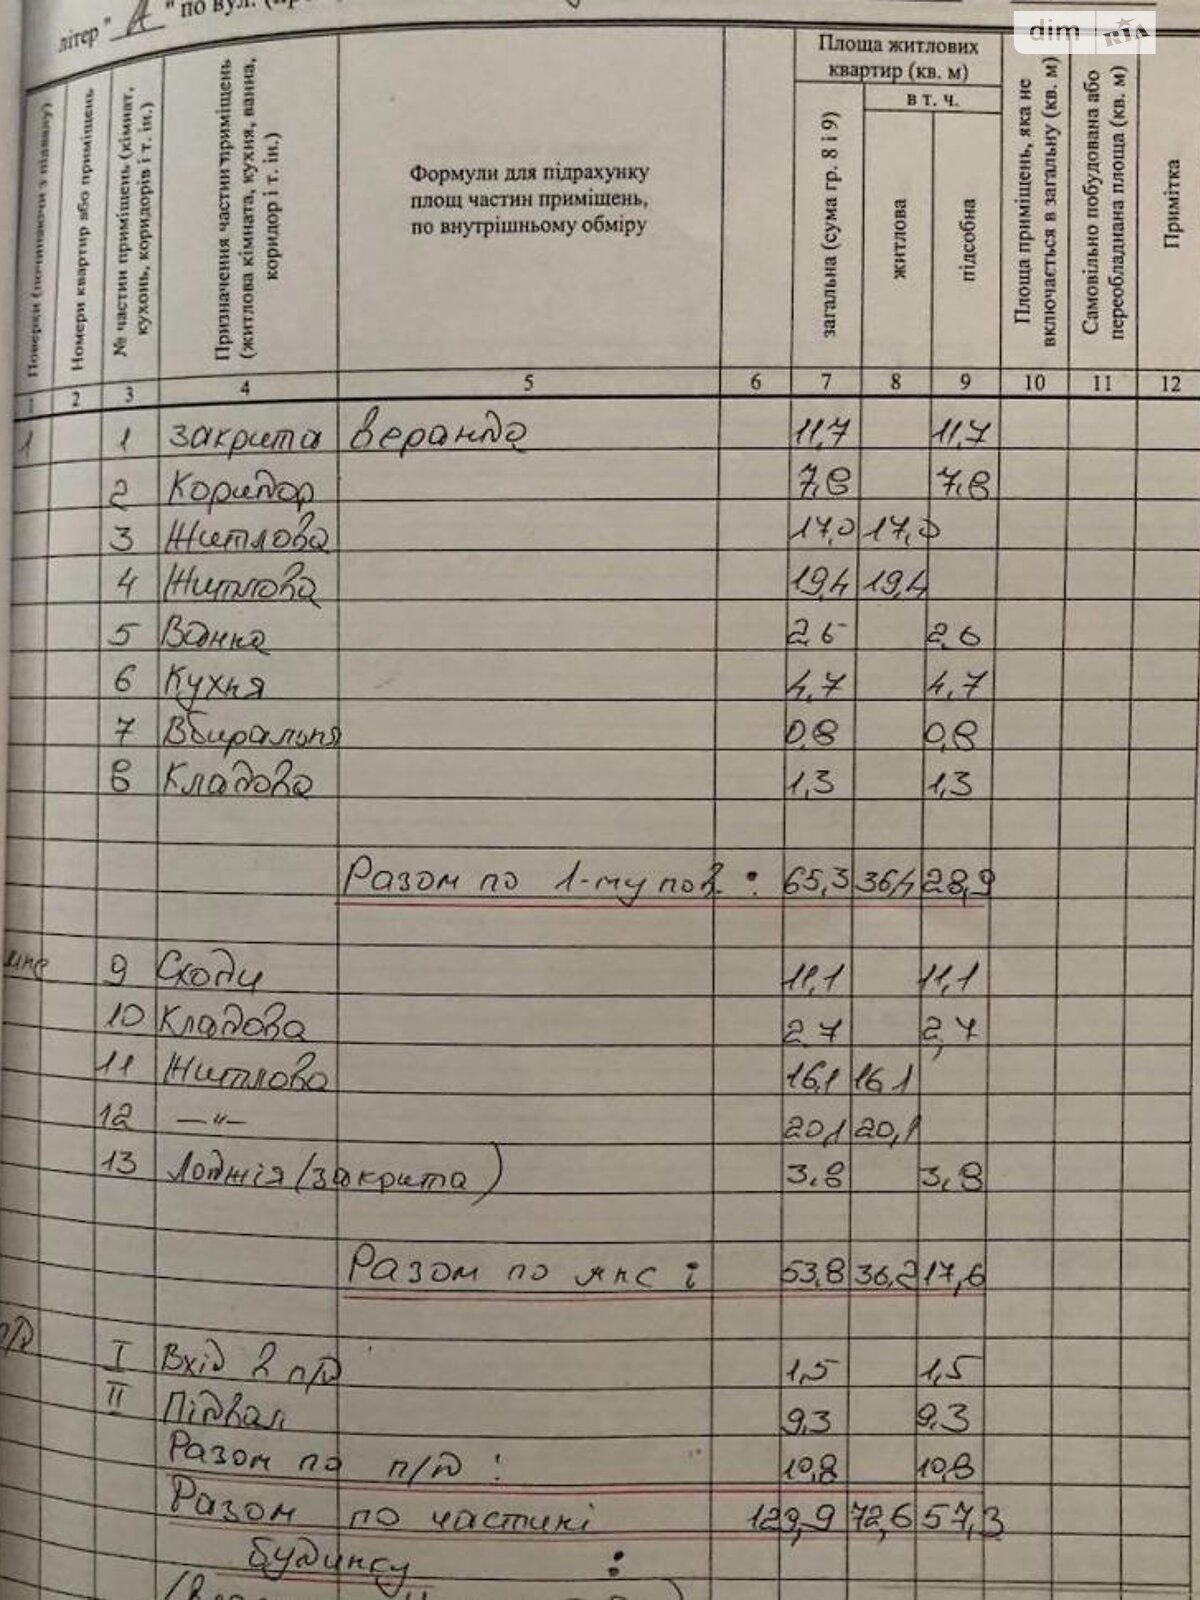 dim RIA
літер " А " по вул.
Поверхи (починаючи з підвалу)
Номери квартир або приміщень
№ частин приміщень (кімнат, кухонь, коридорів і т. ін.)
Призначення частин приміщень (житлова кімната, кухня, ванна, коридор і т. ін.)
Формули для підрахунку
площ частин приміщень,
по внутрішньому обміру
Площа житлових
квартир (кв. м)
в т. ч.
загальна (сума гр. 8 і 9)
житлова
підсобна
Площа приміщень, яка не включається в загальну (кв. м)
Самовільно побудована або переобладнана площа (кв. м)
Примітка
1 2 3 4 5 6 7 8 9 10 11 12
1 1 закрита веранда 11,7 11,7
2 Коридор 7,8 7,8
3 Житлова 17,0 17,0
4 Житлова 19,4 19,4
5 Ванна 2,6 2,6
6 Кухня 4,7 4,7
7 Вбиральня 0,8 0,8
8 Кладова 1,3 1,3
Разом по 1-му пов. : 65,3 36,4 28,9
9 Сходи 11,1 11,1
10 Кладова 2,7 2,7
11 Житлова 16,1 16,1
12 —"— 20,1 20,1
13 Лоджія (закрита) 3,8 3,8
Разом по мнс : 53,8 36,2 17,6
п/д I Вхід в п/д 1,5 1,5
II Підвал 9,3 9,3
Разом по п/д : 10,8 10,8
Разом по частині 129,9 72,6 57,3
будинку :